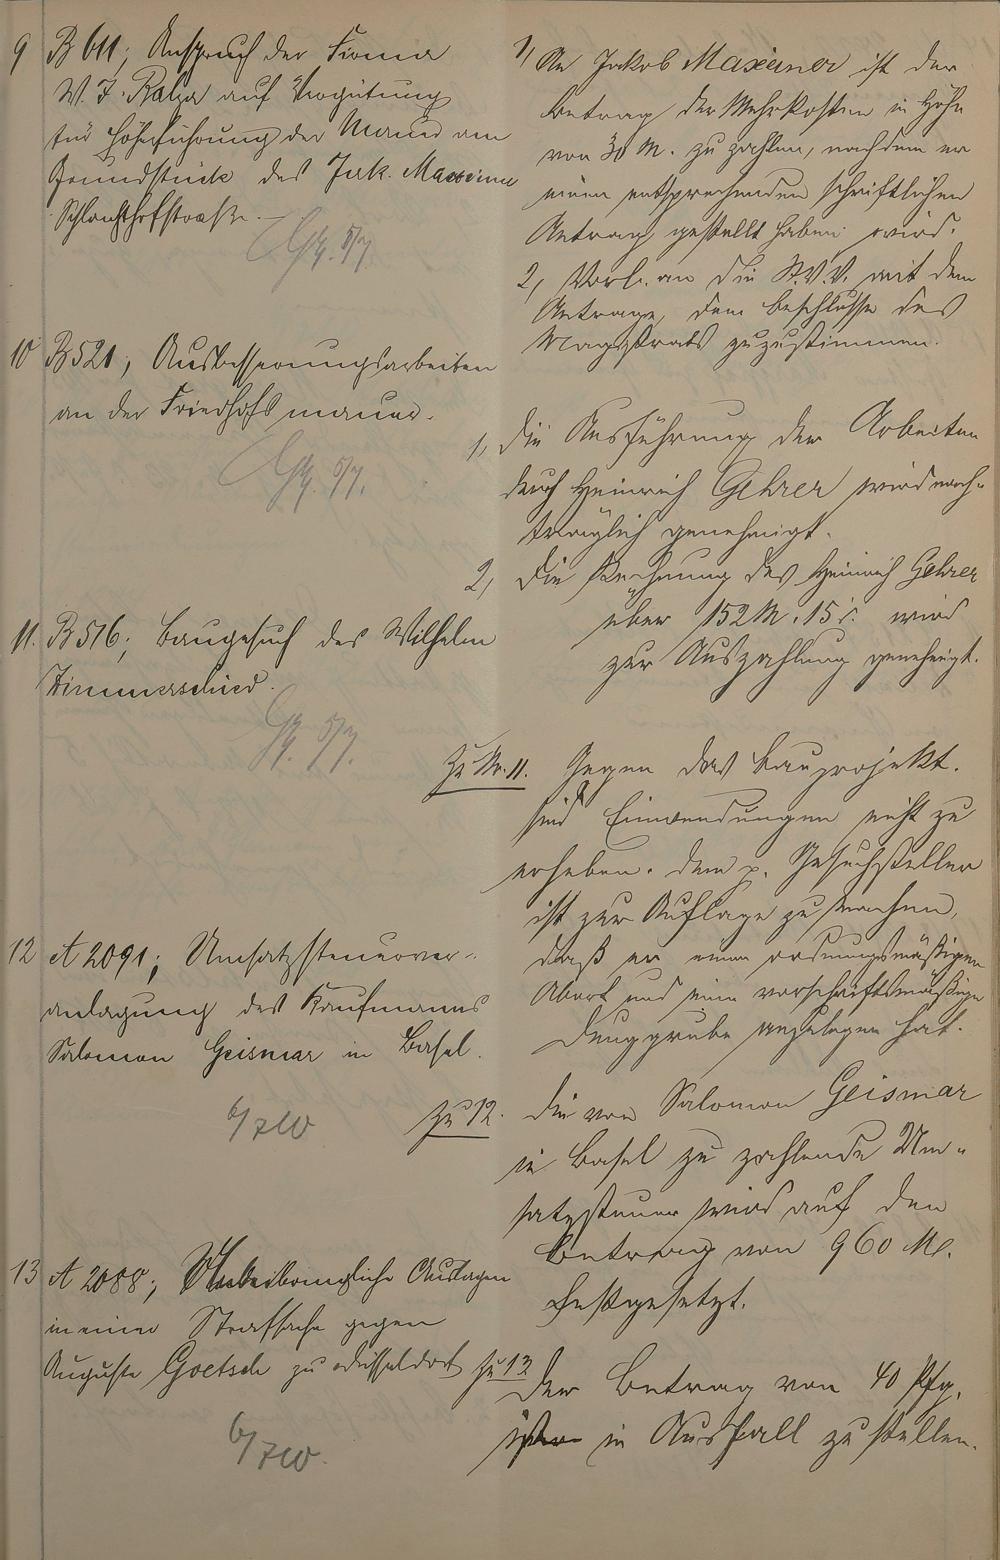 9 B 611; Anspruch der Firma
W. J. auf Vergütung
für Höherführung der Mauer am
Grundstück des Jak. Maxeiner
Schlachthofstraße. —
5/7.
1, An Jakob Maxeiner ist der
Betrag der Mehrkosten in Höhe
von 30 M. zu zahlen, nachdem er
einen entsprechenden schriftlichen
Antrag gestellt haben wird.
2, Vorl. an die St.V.V. mit dem
Antrage, dem Beschlusse des
Magistrats zuzustimmen.
10 B 521; Ausbesserungsarbeiten
an der Friedhofsmauer.
5/7.
1, Die Ausführung der Arbeiten
durch Heinrich Gehrer wird nach-
träglich genehmigt.
2, Die Rechnung des Heinrich Gehrer
über 152 M. 15 wird
zur Auszahlung genehmigt.
11. B 576; Baugesuch des Wilhelm
Zimmerschied.
5/7.
Zu Nr. 11. Gegen das Bauprojekt
sind Einwendungen nicht zu
erheben. Dem p. Gesuchsteller
ist zur Auflage zu machen,
daß er einen ordnungsmäßigen
Abort und eine vorschriftsmäßige
Dunggrube anzulegen hat.
12 A 2091; Umsatzsteuerver-
anlagung des Kaufmanns
Salomon Geismar in Basel.
6/7 10
Zu 12. Die von Salomon Geismar
in Basel zu zahlende Um-
satzsteuer wird auf den
Betrag von 960 M.
festgesetzt.
13 A 2088; Unbeibringliche Auslagen
in einer Strafsache gegen
Auguste Goetsch zu Düsseldorf
6/7 10.
Zu 13 Der Betrag von 40 Pfg.
ist in Ausfall zu stellen.